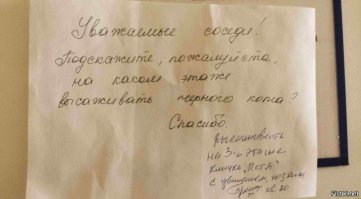 Уважаемые соседи!
Подскажите, пожалуйста,
на каком этаже
высаживать черного кота?
Спасибо
Высаживать
на 3-м этаже
кличка
с уважением,
кв 20
Fishki.net